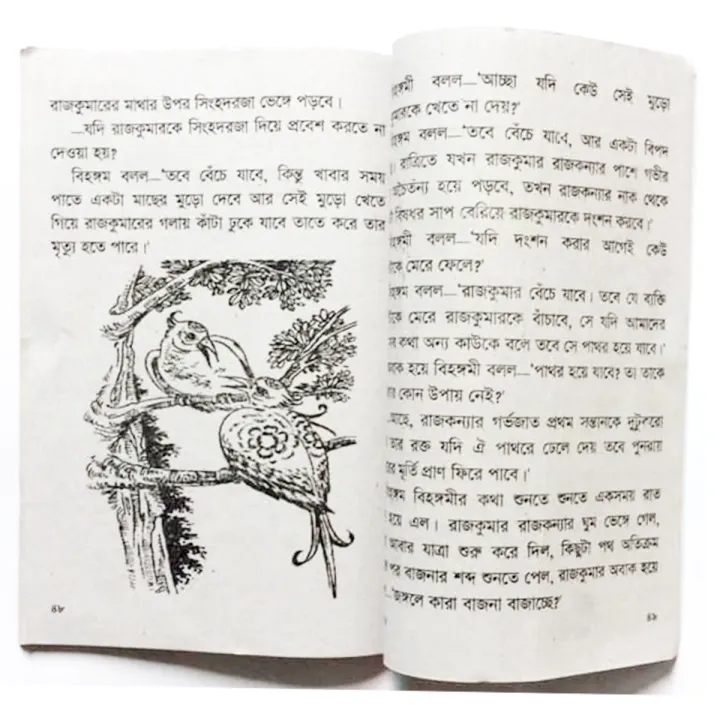 রাজকুমারের মাথার উপর সিংহদরজা ভেঙ্গে পড়বে।
—যদি রাজকুমারকে সিংহদরজা দিয়ে প্রবেশ করতে না
দেওয়া হয়?
বিহঙ্গম বলল—'তবে বেঁচে যাবে, কিন্তু খাবার সময়
পাতে একটা মাছের মুড়ো দেবে আর সেই মুড়ো খেতে
গিয়ে রাজকুমারের গলায় কাঁটা ঢুকে যাবে তাতে করে তার
মৃত্যু হতে পারে।'
৪৮
বিহঙ্গমী বলল—'আচ্ছা যদি কেউ সেই মুড়ো
খেতে না দেয়?'
বলল—'তবে বেঁচে যাবে, আর একটা বিপদ
রাত্রিতে যখন রাজকুমার রাজকন্যার পাশে গভীর
হয়ে পড়বে, তখন রাজকন্যার নাক থেকে
বিষধর সাপ বেরিয়ে রাজকুমারকে দংশন করবে।'
বলল—'যদি দংশন করার আগেই কেউ
মেরে ফেলে?'
বলল—'রাজকুমার বেঁচে যাবে। তবে যে ব্যক্তি
মেরে রাজকুমারকে বাঁচাবে, সে যদি আমাদের
কথা অন্য কাউকে বলে তবে সে পাথর হয়ে যাবে।'
হয়ে বিহঙ্গমী বলল—'পাথর হয়ে যাবে? তা তাকে
কোন উপায় নেই?'
রাজকন্যার গর্ভজাত প্রথম সন্তানকে দুটুকরো
রক্ত যদি ঐ পাথরে ঢেলে দেয় তবে পুনরায়
মূর্তি প্রাণ ফিরে পাবে।'
বিহঙ্গমীর কথা শুনতে শুনতে একসময় রাত
হয়ে এল। রাজকুমার রাজকন্যার ঘুম ভেঙ্গে গেল,
আবার যাত্রা শুরু করে দিল, কিছুটা পথ অতিক্রম
পর বাজনার শব্দ শুনতে পেল, রাজকুমার অবাক হয়ে
'জঙ্গলে কারা বাজনা বাজাচ্ছে?'
৪৯